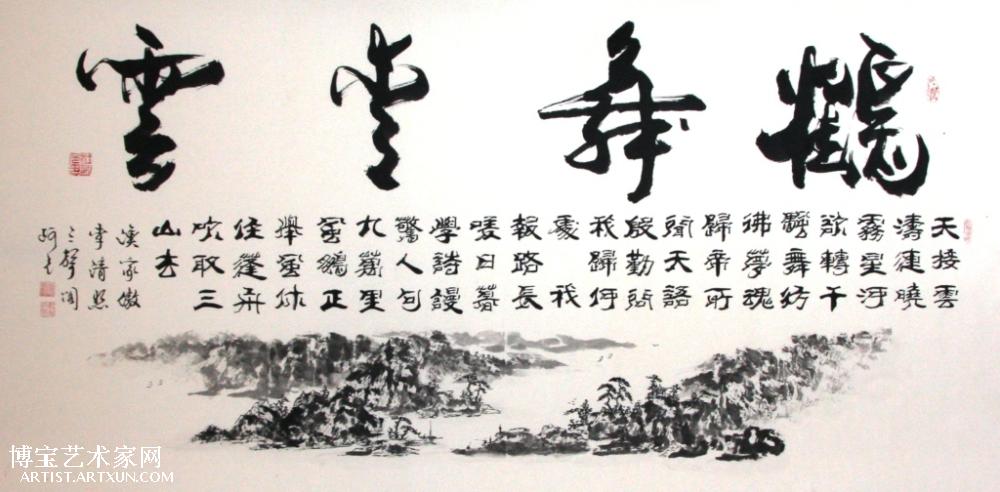 舞 雲
天接雲
濤連曉
霧星河
欲轉千
颿舞仿
彿夢魂
歸帝所
聞天語
殷勤問
我歸何
處 我
報路長
嗟日暮
學詩謾
驚人句
九萬里
風鵬正
舉風休
住蓬舟
吹取三
山去
漁家傲
李清照
三聲閣
博宝艺术家网
ARTIST.ARTXUN.COM